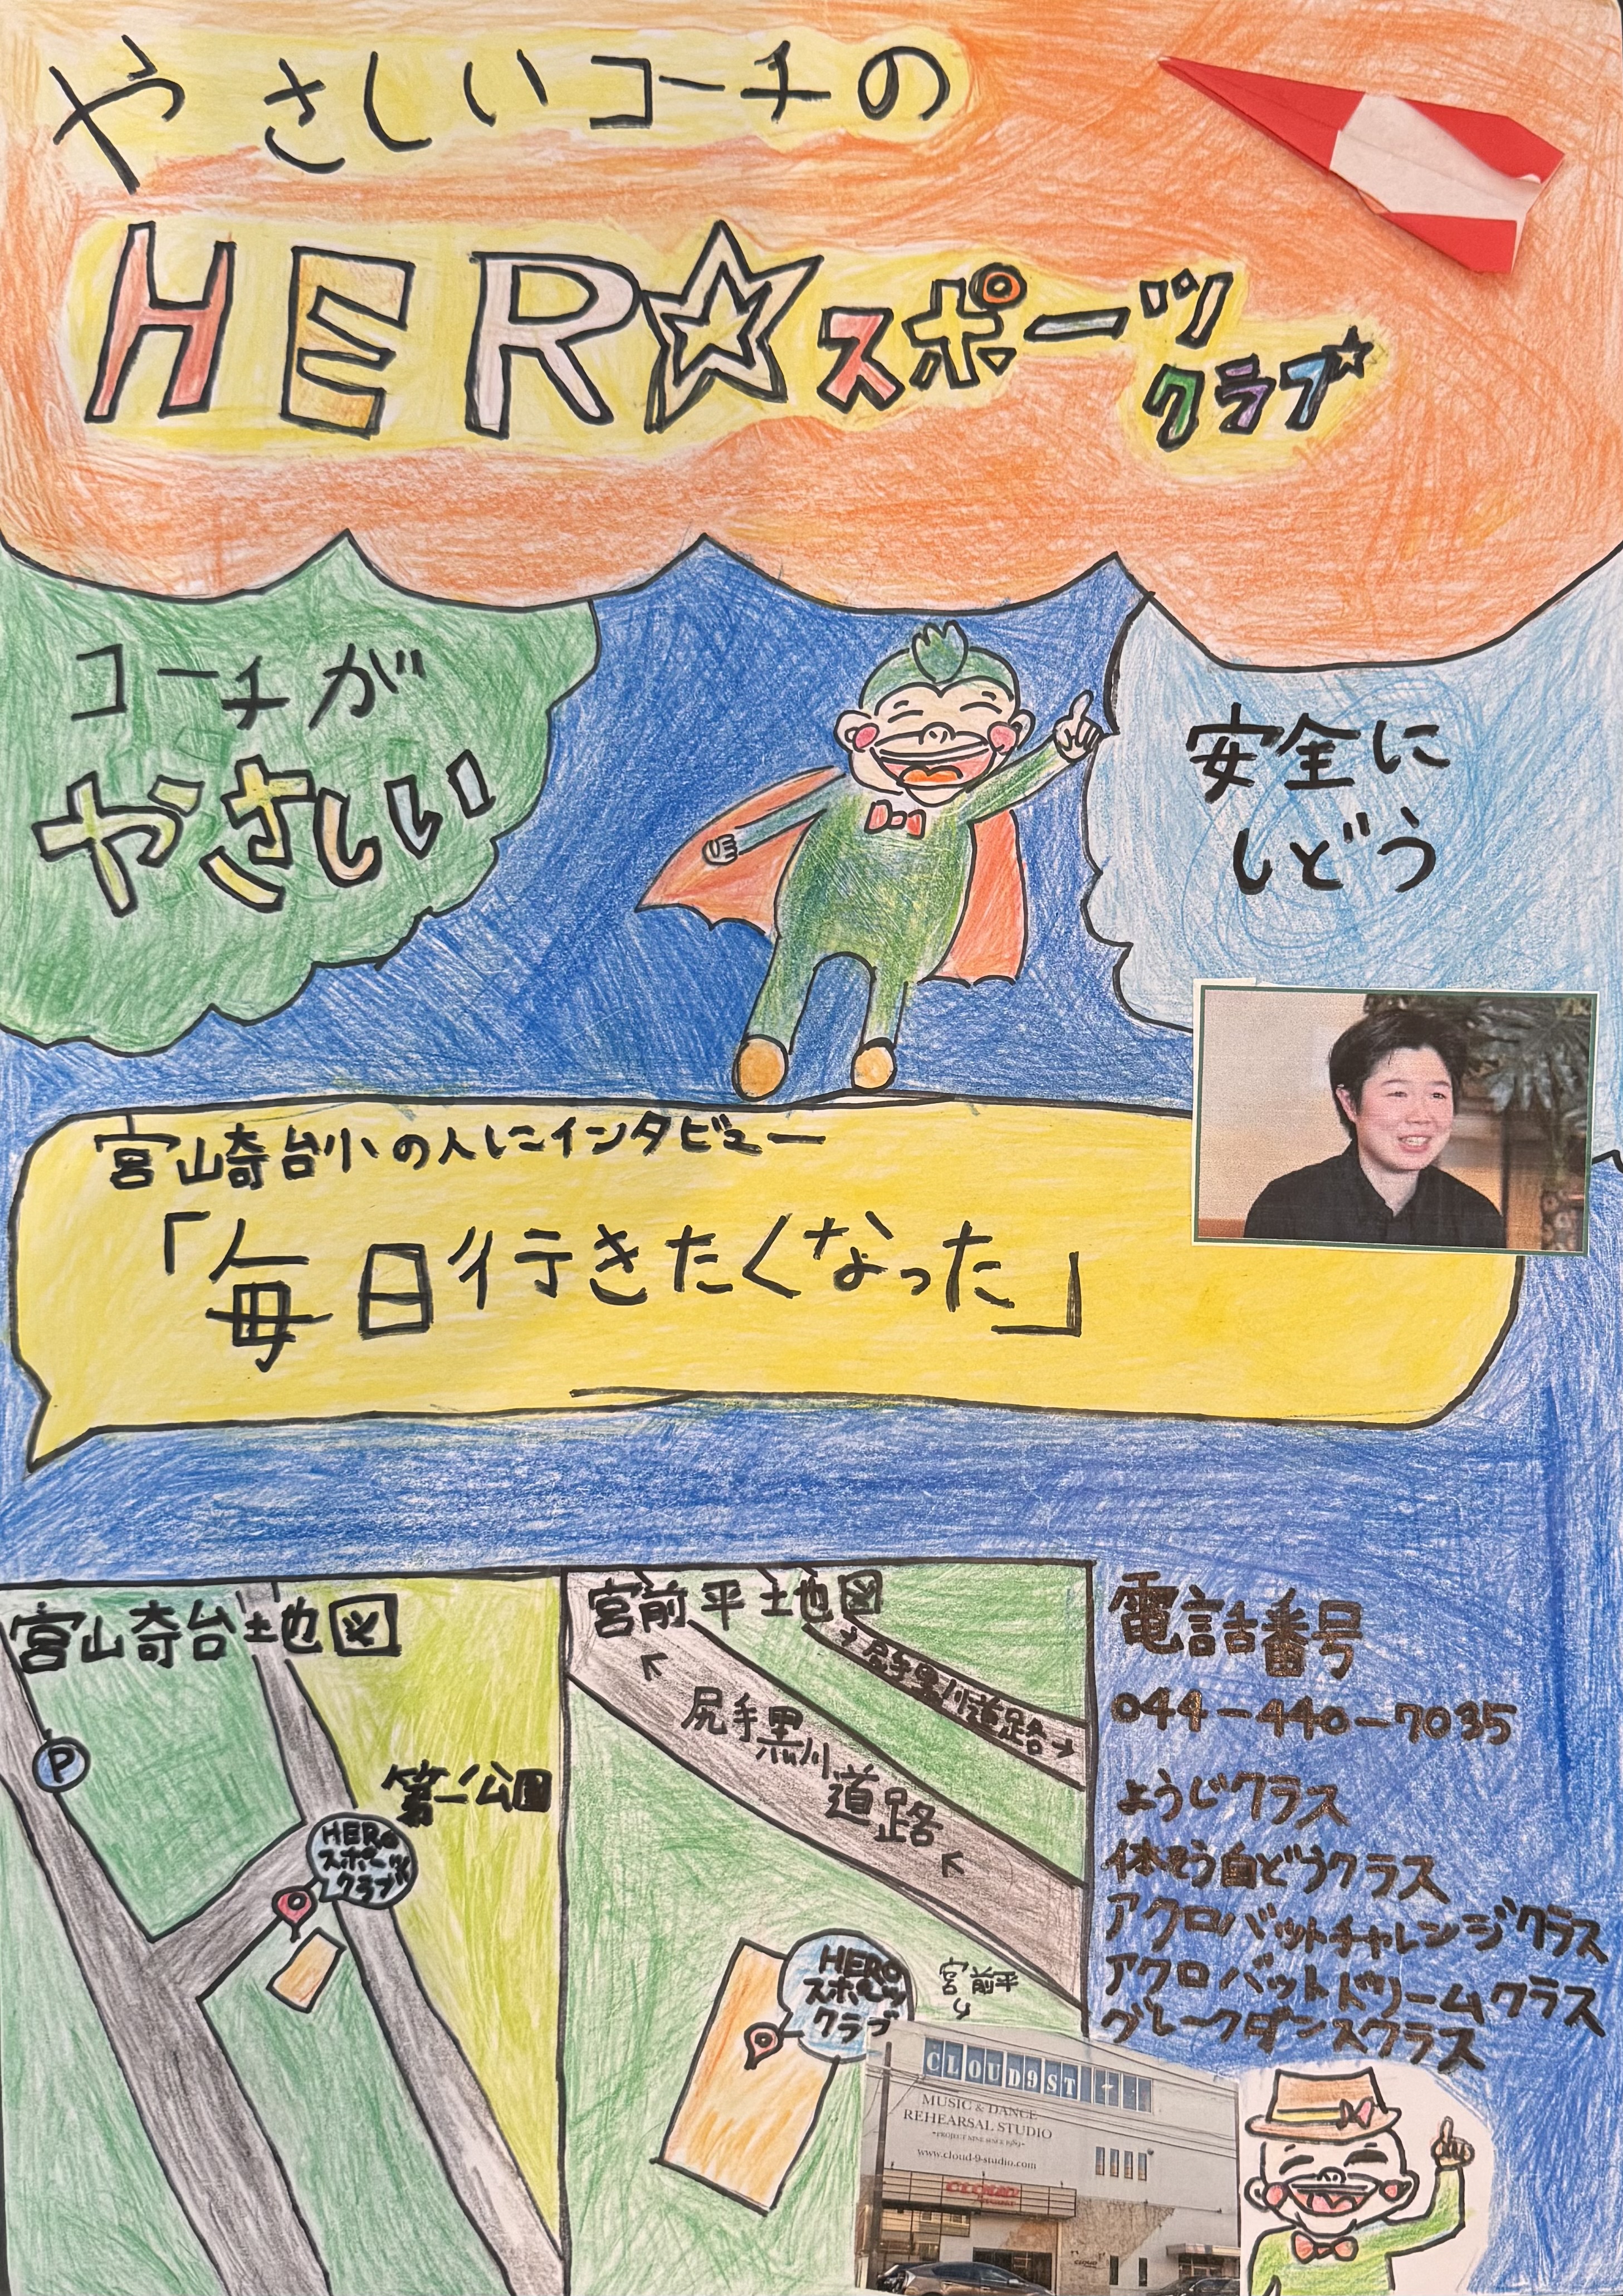 やさしいコーチの
HER☆スポーツ
クラブ
コーチが
やさしい
安全に
しどう
宮崎台小の人にインタビュー
「毎日行きたくなった」
宮崎台地図
P
第一公園
HERO
スポーツ
クラブ
宮前平地図
→尻手黒川道路→
尻手黒川
道路
HERO
スポーツ
クラブ
宮前平
電話番号
044-440-7035
ようじクラス
体そう自どうクラス
アクロバットチャレンジクラス
アクロバットドリームクラス
ブレークダンスクラス
CLOUD9ST
MUSIC & DANCE
REHEARSAL STUDIO
~PROJECT NINE SINCE 1989~
www.cloud-9-studio.com